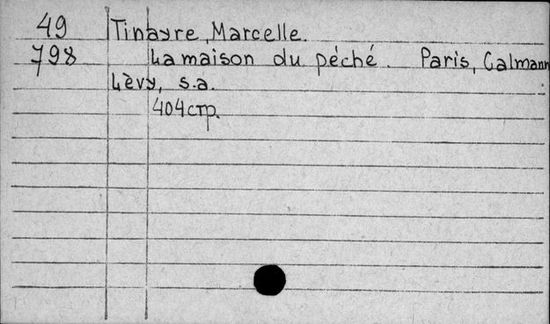 49 Tinayre, Marcelle.
798 La maison du péché. Paris, Calmann
Lèvy, s.a.
404 стр.